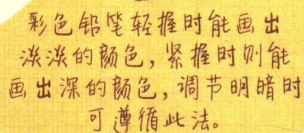 彩色铅笔轻握时能画出
淡淡的颜色，紧握时则能
画出深的颜色，调节明暗时
可遵循此法。